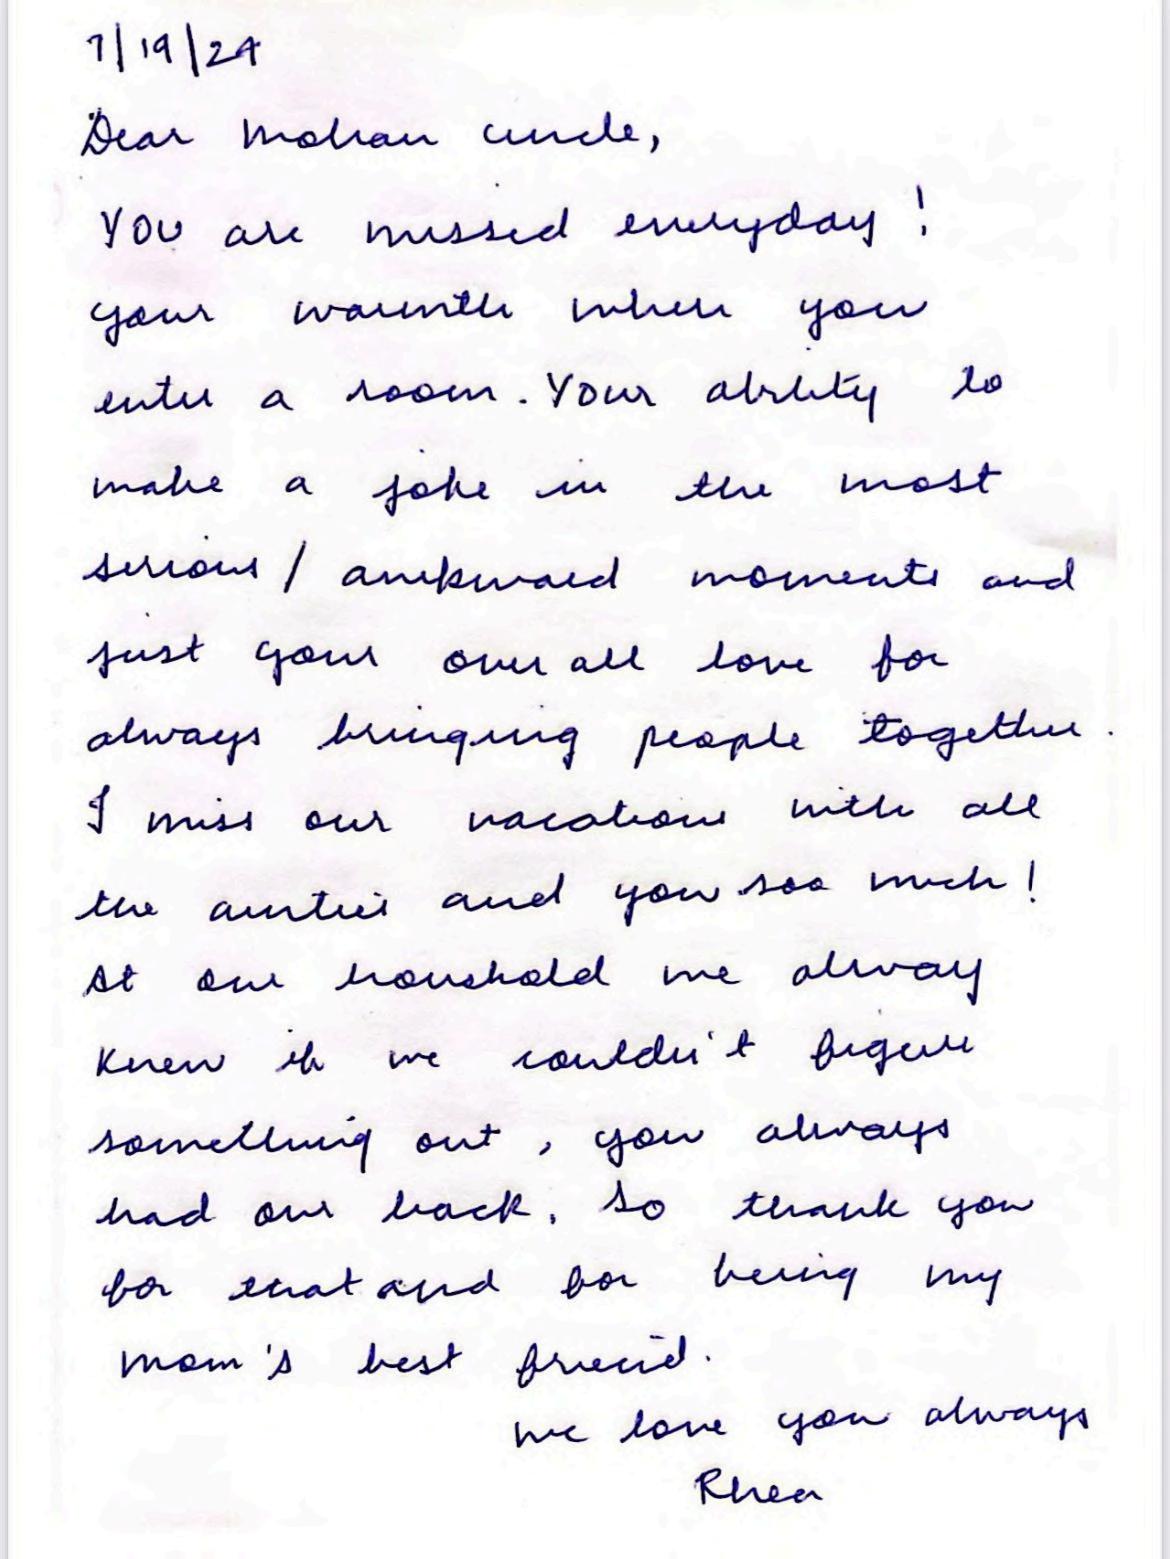 7/19/24
Dear Mohan uncle,
You are missed everyday!
your warmth when you
enter a room. Your ability to
make a joke in the most
serious/awkward moments and
just your over all love for
always bringing people together.
I miss our vacations with all
the aunties and you soo much!
At our houshold we alway
knew if we couldn't figure
something out, you always
had our back. So thank you
for that and for being my
mom's best friend.
we love you always
Rhea